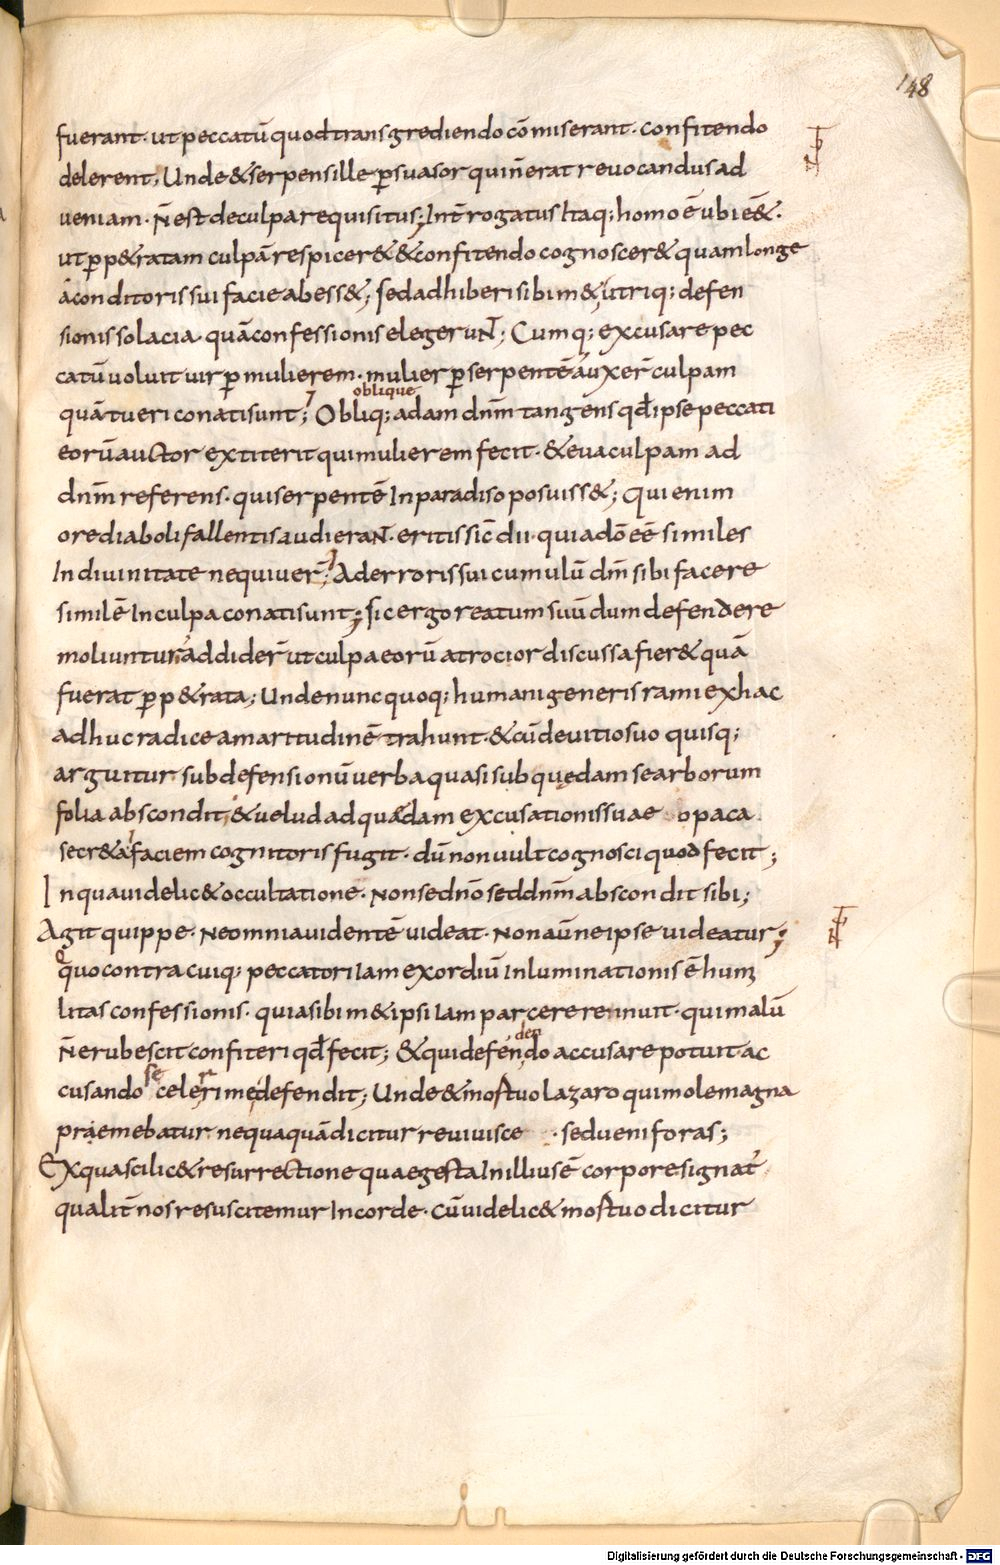 148
fuerant· ut peccatū quod transgrediendo cōmiserant· confitendo
delerent; Unde & serpens ille p̄suasor qui n̄ erat revocandus ad
ueniam· N̄ est de culpa requisitus; Int̄rogatus Itaq; homo ē ubi eēt&·
ut p̄p&ratam culpā respicer& & confitendo cognoscer& quam longe
a conditoris sui facie abess&; sed adhiberi sibim& utriq; defen
sionis solacia quā confessionis elegeruNT; Cumq; excusare pec
catū uoluit uir p̄ mulierem· mulier p̄ serpentē auxer̄ culpam
oblique
quā tueri conati sunt; Obliq; adam dnm̄ tangens qd̄ ipse peccati
eorū auctor extiterit qui mulierem fecit· & eua culpam ad
dnm̄ referens· qui serpentē In paradiso posuiss&; Qui enim
ore diaboli fallentis audieraNT· eritis sic̄ dii· quia dō eē similes
In diuinitate nequiver̄; Ad erroris sui cumulū dm̄ sibi facere
similē In culpa conati sunt; sic ergo reatum suū dum defendere
moliuntur addider̄ ut culpa eorū atrocior discussa fier& quā
fuerat p̄p&rata; Unde nunc quoq; humani generis rami ex hac
adhuc radice amaritudinē trahunt· & cū de uitio suo quisq;
arguitur sub defensionū uerba quasi sub quędam se arborum
folia abscondit; & uelud ad quādam excusationis suae opaca
secr&a faciem cognitoris fugit· dū non uult cognosci quod fecit;
In qua uidelic& occultatione· Non se dn̄o sed dnm̄ abscondit sibi;
Agit quippe· Ne omnia uidentē uideat· Non aūt ne ipse uideatur;
Quo contra cuiq; peccatori Iam exordiū Inluminationis ē humi
litas confessionis· quia sibim&ipsi Iam parcere rennuit· qui malū
den
n̄ erubescit confiteri qd̄ fecit; & qui defendo accusare potuit ac
cusando se celerrime defendit; Unde & mortuo Lazaro qui mole magna
praemebatur nequaquā dicitur revivisce · sed ueni foras;
Ex qua scilic& resurrectione quae gesta In illius ē corpore signat̄
qualit̄ nos resuscitemur In corde· Cū uidelic& mortuo dicitur
Digitalisierung gefördert durch die Deutsche Forschungsgemeinschaft - DFG